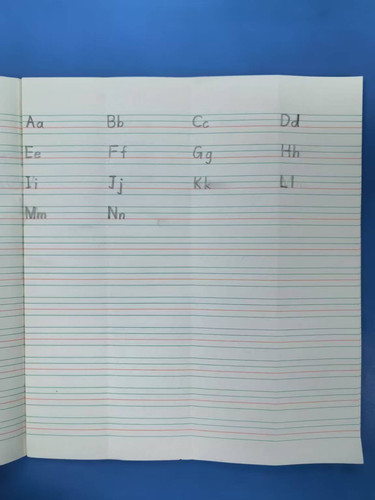 Aa Bb Cc Dd
Ee Ff Gg Hh
Ii Jj Kk Ll
Mm Nn